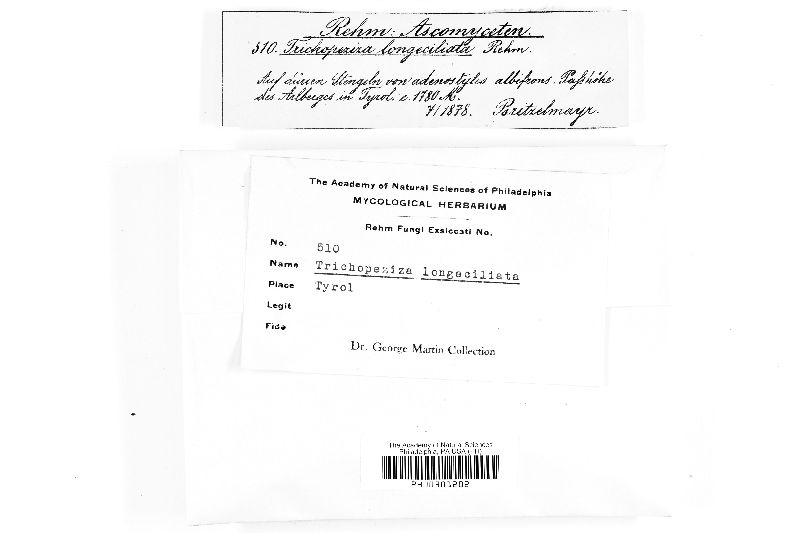 Rehm: Ascomyceten.
510. Trichopeziza longeciliata Rehm.
Auf dürren Stängeln von adenostyles albifrons. Passhöhe
des Arlberges in Tyrol. c. 1780 M.
7/1878. Britzelmayr.
The Academy of Natural Sciences of Philadelphia
MYCOLOGICAL HERBARIUM
Rehm Fungi Exsiccati No.
No. 510
Name Trichopeziza longeciliata
Place Tyrol
Legit
Fide
Dr. George Martin Collection
The Academy of Natural Sciences
Philadelphia, PA USA